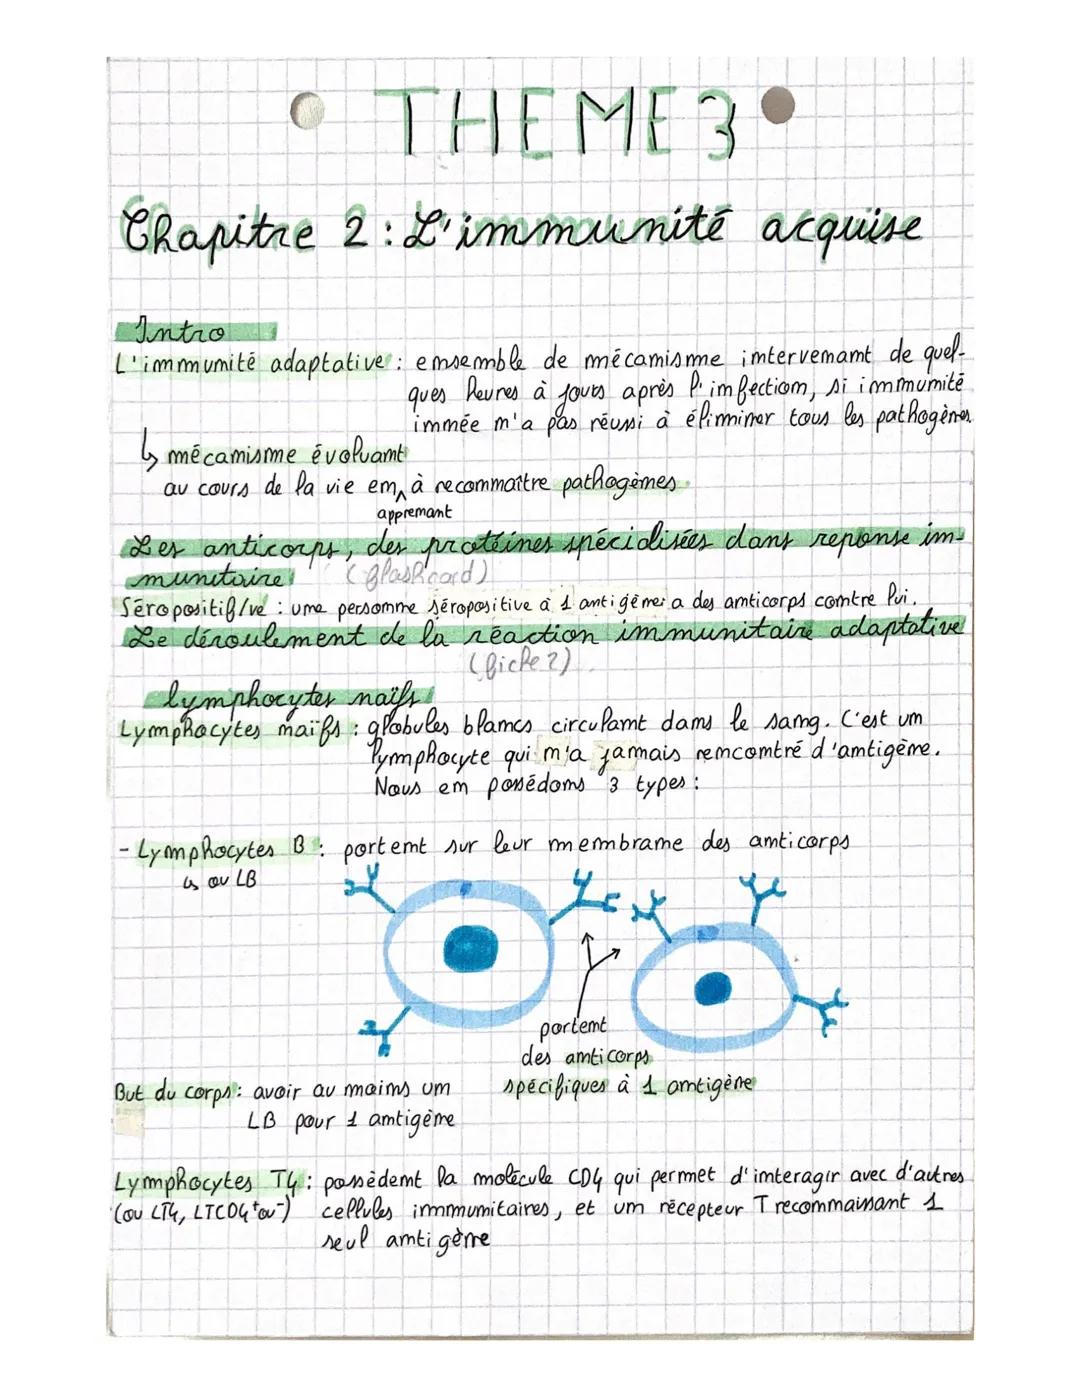 THEME 3
Chapitre 2 : L'immunité acquise
Intro
L'immunité adaptative : ensemble de mécanisme intervenant de quel-
ques heures à jours après l'infection, si immunité
innée n'a pas réussi à éliminer tous les pathogènes.
↳ mécanisme évoluant
au cours de la vie en ^ à reconnaître pathogènes.
apprenant
Les anticorps, des protéines spécialisées dans reponse im-
munitaire (flashcard)
Séropositif/ve : une personne séropositive à 1 antigènes a des anticorps contre lui.
Le déroulement de la réaction immunitaire adaptative
(fiche 2)
lymphocytes naïfs
Lymphocytes naïfs : globules blancs circulant dans le sang. C'est un
lymphocyte qui n'a jamais rencontré d'antigène.
Nous en possédons 3 types :
- Lymphocytes B : portent sur leur membrane des anticorps
↳ ou LB
portent
des anticorps
spécifiques à 1 antigène
But du corps : avoir au moins un
LB pour 1 antigène
Lymphocytes T4 : possèdent la molécule CD4 qui permet d'interagir avec d'autres
(ou LT4, LTCD4 + ou -) cellules immunitaires, et un récepteur T reconnaissant 1
seul antigène